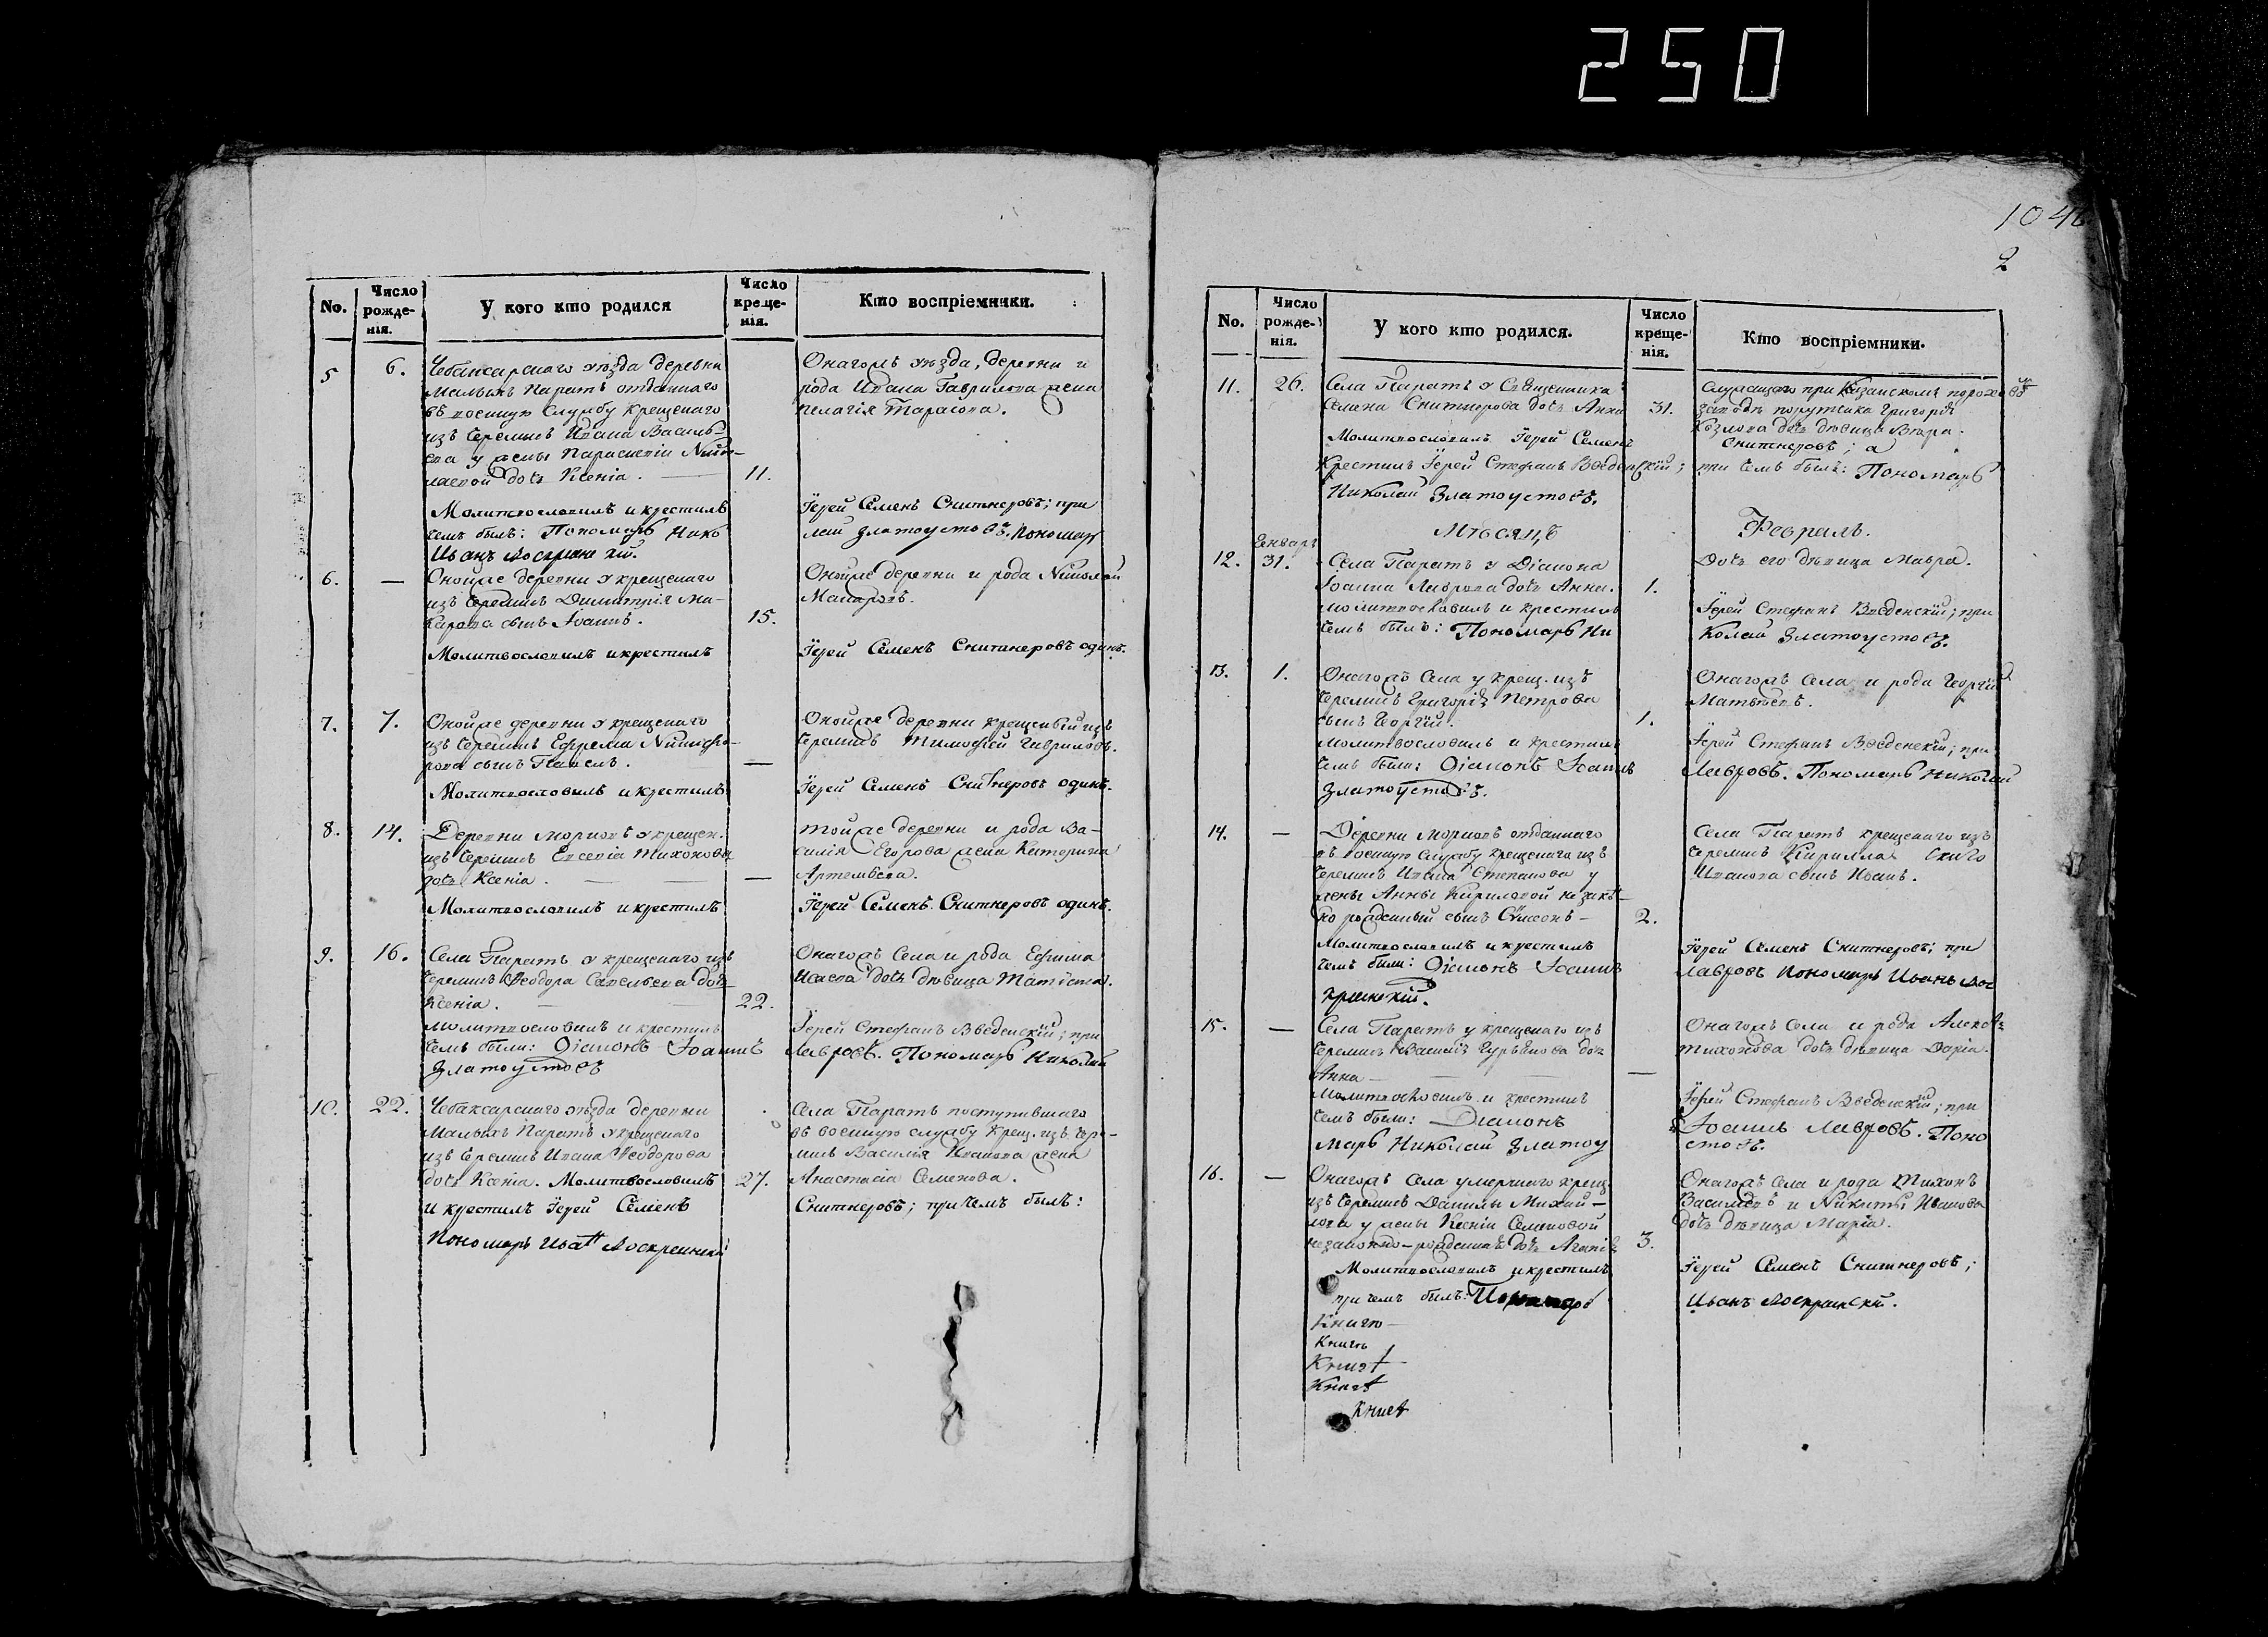 250
1046
2
No.
Число рожде-нія.
У кого кто родился
Число креще-нія.
Кто воспріемники.
5
6.
Чебаксарскаго уѣзда деревни
Малыхъ Паратъ отданнаго
въ военную службу крещенаго
изъ черемисъ Ивана Василь-
ева у жены Параскевіи Нико-
лаевой дочь Ксенія.
11.
Онагожъ уѣзда, деревни и
рода Ивана Гаврилова жена
Пелагія Тарасова.
Молитвословилъ и крестилъ
Іерей Семенъ Снитнеровъ; при
чемъ былъ: Пономарь Нико
лай Златоустовъ. Пономарь
Иванъ Воскресенскій.
6.
—
Онойже деревни у крещенаго
изъ черемисъ Димитрія Ма-
карова сынъ Іоаннъ.
15.
Онойже деревни и рода Николай
Макаровъ.
Молитвословилъ и крестилъ
Іерей Семенъ Снитнеровъ одинъ.
7.
7.
Онойже деревни у крещенаго
изъ черемисъ Ефрема Никифо-
рова сынъ Павелъ.
—
Онойже деревни крещеный изъ
черемисъ Тимофей Гавриловъ.
Молитвословилъ и крестилъ
Іерей Семенъ Снитнеровъ одинъ.
8.
14.
Деревни Морковъ у крещен.
изъ черемисъ Евсевія Тихонова
дочь Ксенія.
—
тойже деревни и рода Ва-
силія Егорова жена Катерина
Артемьева.
Молитвословилъ и крестилъ
Іерей Семенъ Снитнеровъ одинъ.
9.
16.
Села Паратъ у крещенаго изъ
черемисъ Ѳеодора Савельева дочь
Ксенія.
22.
Онагожъ Села и рода Ефима
Исаева дочь дѣвица Татіана.
Молитвословилъ и крестилъ
Іерей Стефанъ Введенскій; при
чемъ были: Діаконъ Іоаннъ
Лавровъ. Пономарь Николай
Златоустовъ
10.
22.
Чебаксарскаго уѣзда деревни
Малыхъ Паратъ у крещенаго
изъ черемисъ Ивана Ѳеодорова
дочь Ксенія. Молитвословилъ
27.
Села Паратъ поступившаго
въ военную службу крещ. изъ чере-
мисъ Василія Иванова жена
Анастасія Семенова.
и крестилъ Іерей Семенъ
Снитнеровъ; при чемъ былъ:
Пономарь Иванъ Воскресенскій
No.
Число рожде-нія.
У кого кто родился.
Число креще-нія.
Кто воспріемники.
11.
26.
Села Паратъ у Священника
Семена Снитнерова дочь Анна
31.
служащаго при Казанскомъ пороховомъ
заводѣ порутчика Григорія
Козлова дочь дѣвица Вѣра.
Молитвословилъ Іерей Семенъ
Снитнеровъ; а
Крестилъ Іерей Стефанъ Введенскій;
при чемъ былъ: Пономарь
Николай Златоустовъ.
Мѣсяцъ
Февраль.
12.
Енваря
31.
Села Паратъ у Діакона
Іоанна Лаврова дочь Анна.
1.
Дочь его дѣвица Мавра.
молитвословилъ и крестилъ
Іерей Стефанъ Введенскій; при
чемъ былъ: Пономарь Ни
колай Златоустовъ.
13.
1.
Онагожъ Села у крещ. изъ
черемисъ Григорія Петрова
сынъ Георгій.
1.
Онагожъ Села и рода Георгій
Матвѣевъ.
молитвословилъ и крестилъ
Іерей Стефанъ Введенскій; при
чемъ были: Діаконъ Іоаннъ
Лавровъ. Пономарь Николай
Златоустовъ.
14.
—
Деревни Морковъ отданнаго
въ военную службу крещенаго изъ
черемисъ Ивана Степанова у
жены Анны Кириловой незакон-
но рожденный сынъ Сѵмеонъ—
2.
Села Паратъ крещенаго изъ
черемисъ Кирилла
Иванова сынъ Иванъ.
Молитвословилъ и крестилъ
Іерей Семенъ Снитнеровъ; при
чемъ были: Діаконъ Іоаннъ
Лавровъ Пономарь Иванъ Вос
кресенскій.
15.
—
Села Паратъ у крещенаго изъ
черемисъ Василія Гурьянова дочь
Анна
—
Онагожъ Села и рода Алексѣя
Тихонова дочь дѣвица Дарія.
Молитвословилъ и крестилъ
Іерей Стефанъ Введенскій; при
чемъ были: Діаконъ
Іоаннъ Лавровъ. Поно
марь Николай Златоу
стовъ.
16.
—
Онагожъ Села умершаго крещ.
изъ черемисъ Данилы Михай-
лова у жены Ксеніи Семеновой
незаконно-рожденная дочь Агапія
3.
Онагожъ Села и рода Тихонъ
Васильевъ и Никиты Иванова
дочь дѣвица Марія.
Молитвословилъ и крестилъ
Іерей Семенъ Снитнеровъ;
при чемъ былъ: Пономарь
Иванъ Воскресенскій.
Книго
Книг
Книг
Книг
Книг